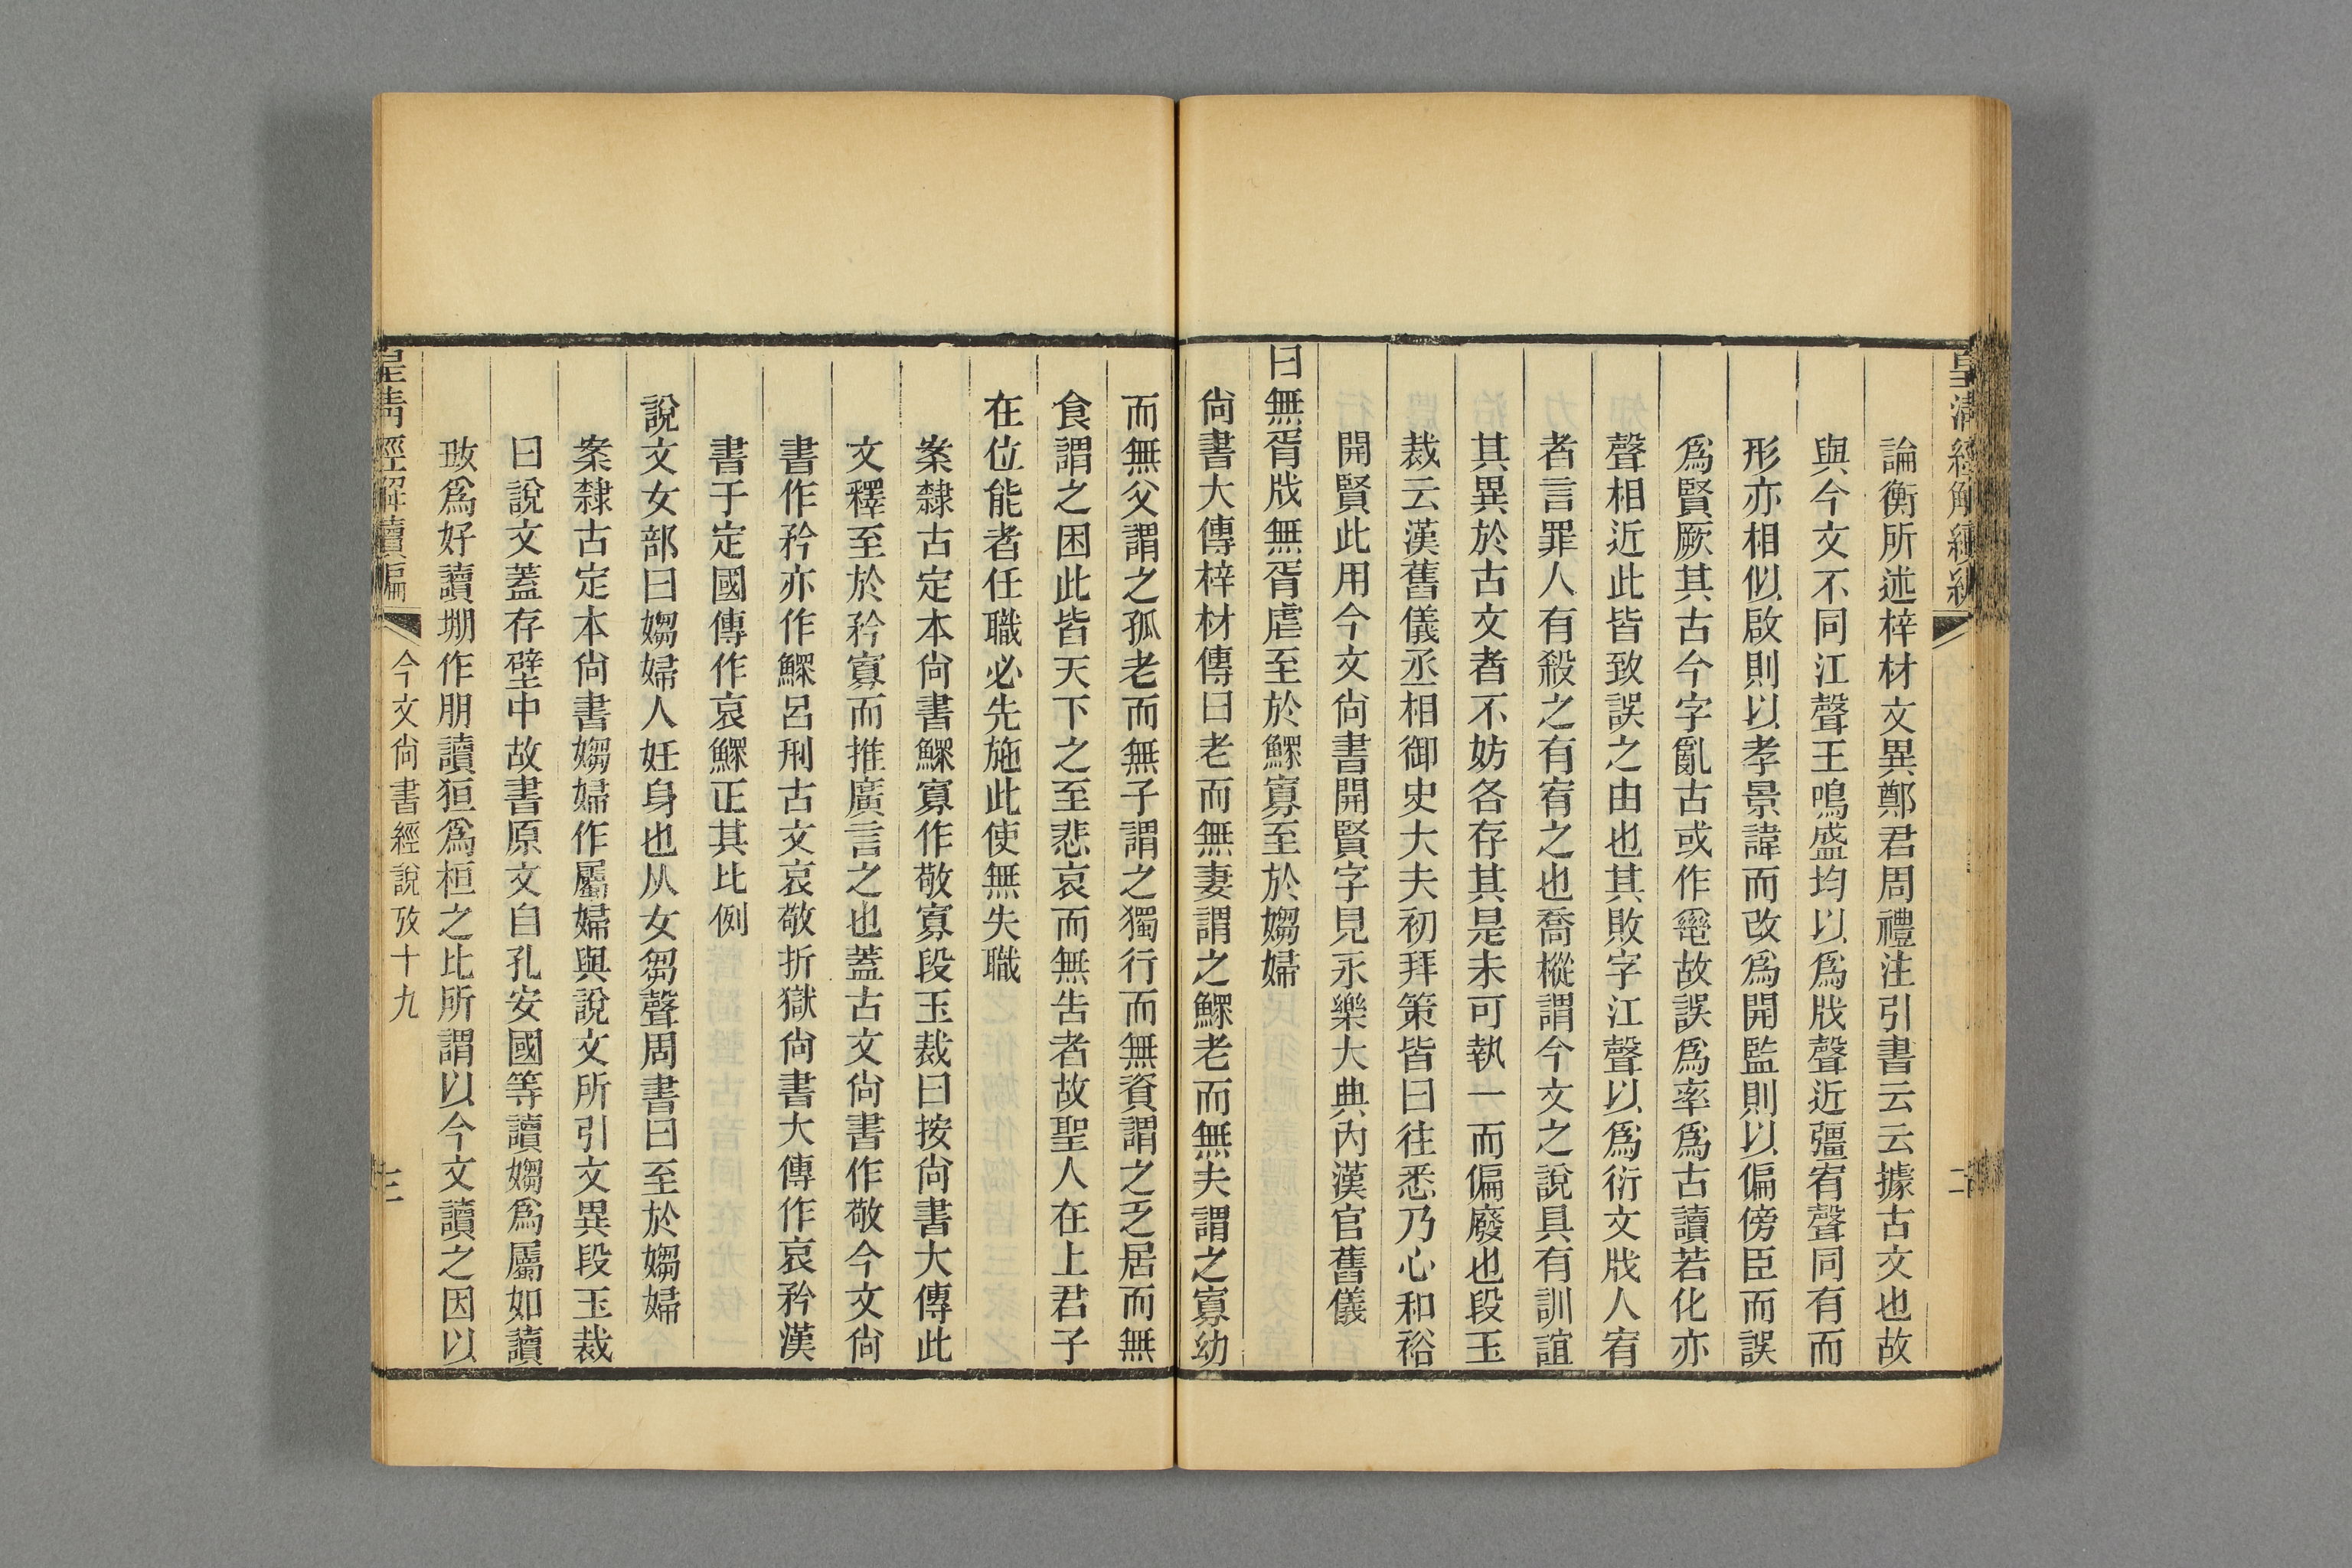 皇清經解續編
二
論衡所述梓材文異鄭君周禮注引書云云據古文也故
與今文不同江聲王鳴盛均以爲戕聲近彊宥聲同有而
形亦相似啟則以孝景諱而改爲開監則以偏傍臣而誤
爲賢厥其古今字亂古或作𤔔故誤爲率爲古讀若化亦
聲相近此皆致誤之由也其敗字江聲以爲衍文戕人宥
者言罪人有殺之有宥之也喬樅謂今文之說具有訓誼
其異於古文者不妨各存其是未可執一而偏廢也段玉
裁云漢舊儀丞相御史大夫初拜策皆曰往悉乃心和裕
開賢此用今文尙書開賢字見永樂大典內漢官舊儀
曰無胥戕無胥虐至於鰥寡至於媰婦
尙書大傳梓材傳曰老而無妻謂之鰥老而無夫謂之寡幼
而無父謂之孤老而無子謂之獨行而無資謂之乏居而無
食謂之困此皆天下之至悲哀而無告者故聖人在上君子
在位能者任職必先施此使無失職
案隸古定本尙書鰥寡作敬寡段玉裁曰按尙書大傳此
文釋至於矜寡而推廣言之也蓋古文尙書作敬今文尙
書作矜亦作鰥呂刑古文哀敬折獄尙書大傳作哀矜漢
書于定國傳作哀鰥正其比例
說文女部曰媰婦人妊身也从女芻聲周書曰至於媰婦
案隸古定本尙書媰婦作屬婦與說文所引文異段玉裁
曰說文蓋存壁中故書原文自孔安國等讀媰爲屬如讀
𡚽爲好讀堋作朋讀狟爲桓之比所謂以今文讀之因以
皇淸經解續編
今文尙書經說攷十九
三